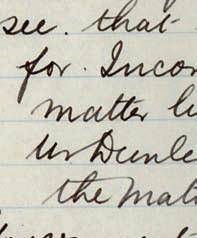 see. that
for. Incor
matter li
Mr Dunle
the mat